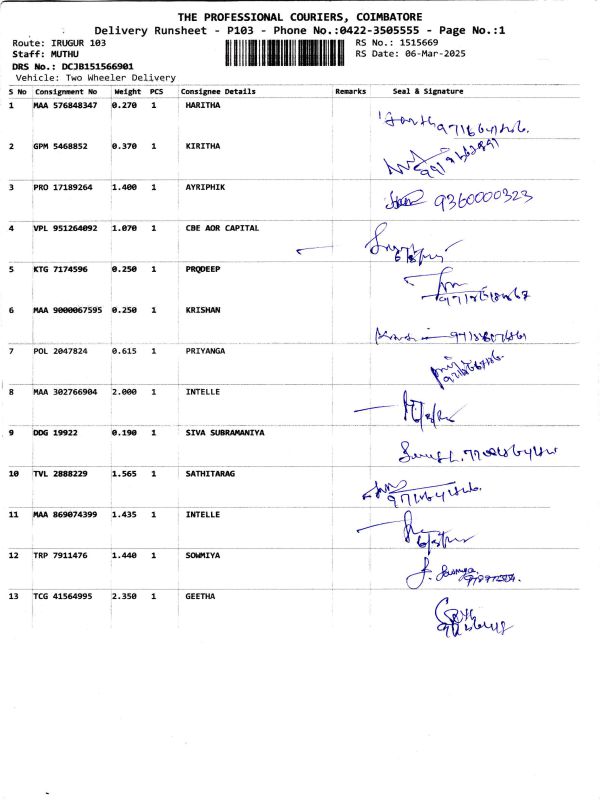 THE PROFESSIONAL COURIERS, COIMBATORE
Delivery Runsheet - P103 - Phone No.:0422-3505555 - Page No.:1
Route: IRUGUR 103 RS No.: 1515669
Staff: MUTHU RS Date: 06-Mar-2025
DRS No.: DCJB151566901
Vehicle: Two Wheeler Delivery
S No Consignment No Weight PCS Consignee Details Remarks Seal & Signature
1 MAA 576848347 0.270 1 HARITHA
2 GPM 5468852 0.370 1 KIRITHA
3 PRO 17189264 1.400 1 AYRIPHIK 9360000323
4 VPL 951264092 1.070 1 CBE AOR CAPITAL
5 KTG 7174596 0.250 1 PRQDEEP
6 MAA 9000067595 0.250 1 KRISHAN
7 POL 2047824 0.615 1 PRIYANGA
8 MAA 302766904 2.000 1 INTELLE
9 DDG 19922 0.190 1 SIVA SUBRAMANIYA
10 TVL 2888229 1.565 1 SATHITARAG
11 MAA 869074399 1.435 1 INTELLE
12 TRP 7911476 1.440 1 SOWMIYA
13 TCG 41564995 2.350 1 GEETHA